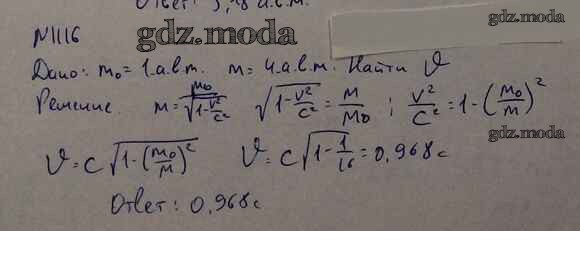 Ответ: 3,18 а.е.м.
N1116
gdz.moda
gdz.moda
Дано: m₀ = 1 а.е.м. m = 4 а.е.м. Найти υ
Решение. M = m₀/√(1-v²/c²) √(1-v²/c²) = M/M₀ ; v²/c² = 1-(m₀/m)²
gdz.moda
υ = c√(1-(m₀/M)²) υ = c√(1-1/16) = 0,968c
Ответ: 0,968c